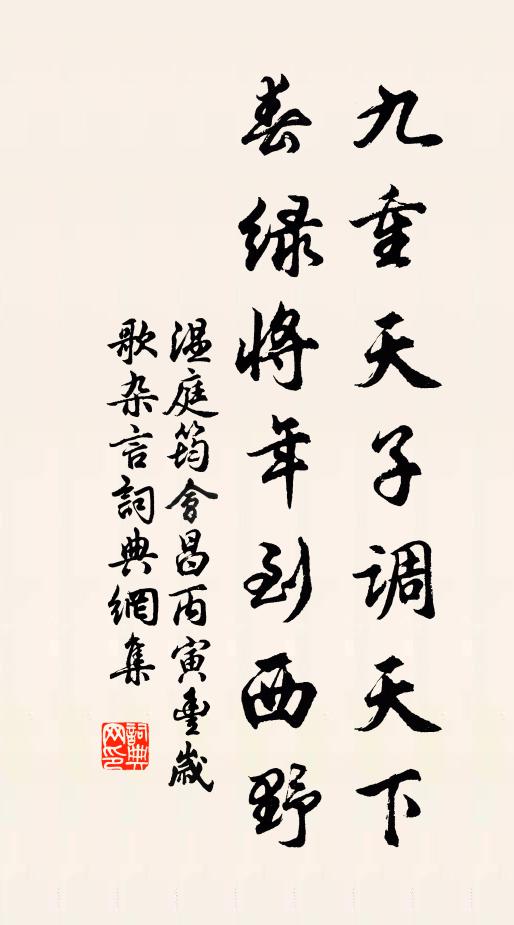 九重天子调天下
春绿将年到西野
温庭筠會昌丙寅豊歲
歌杂言詞典網集
詞典网印